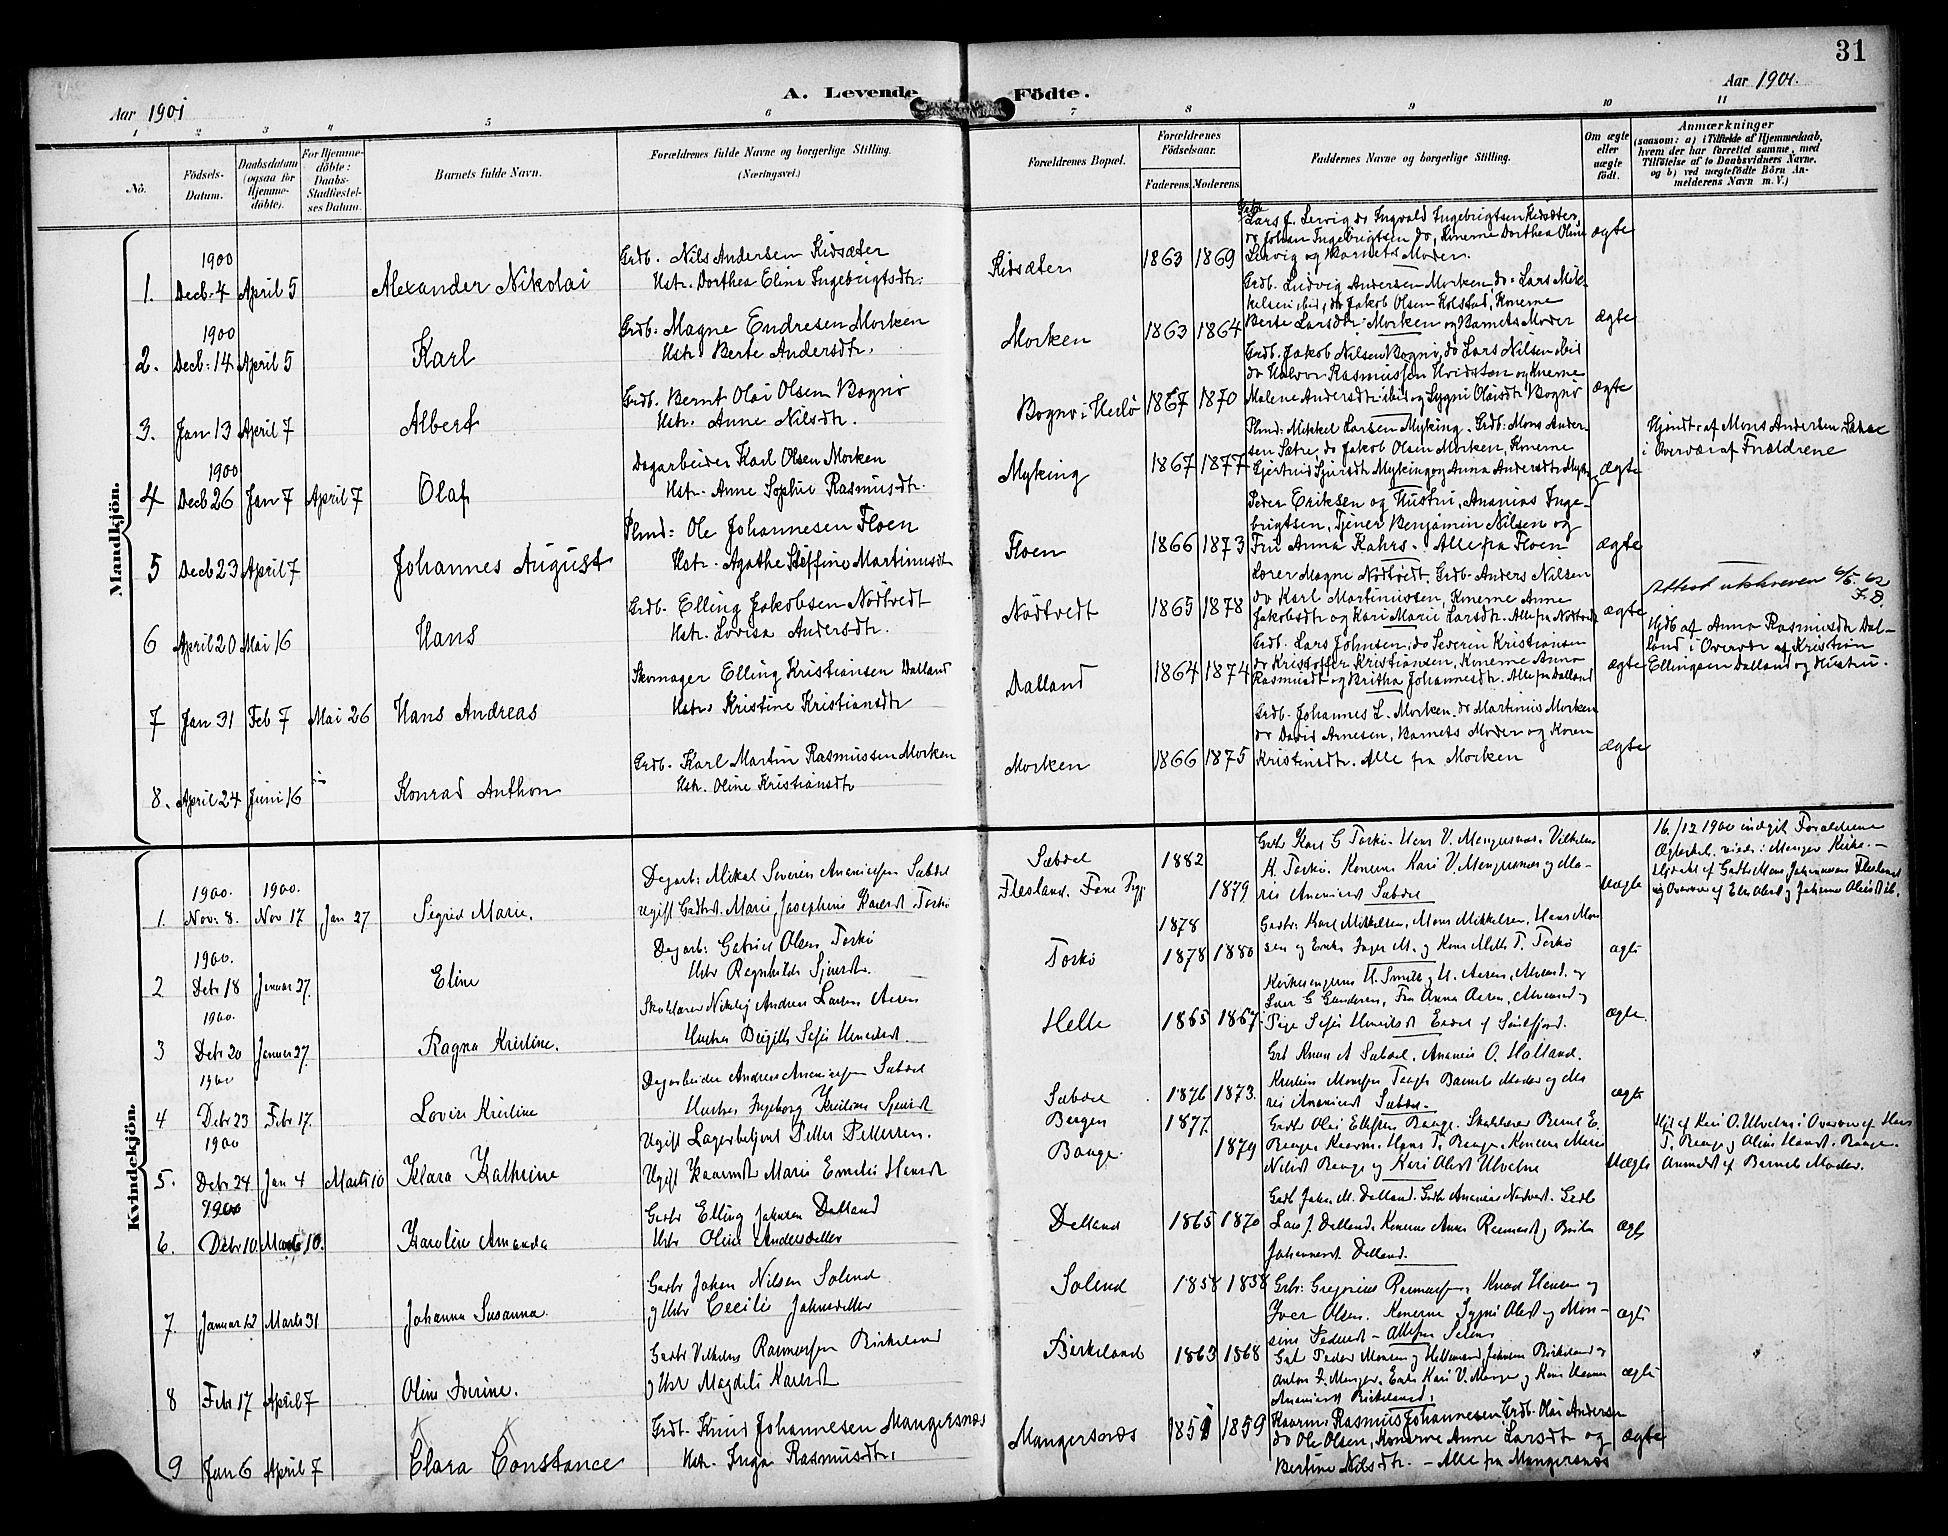 31
A. Levende Födte.
Aar 1901
Aar 1901.
1 2 3 4 5 6 7 8 9 10 11
No.
Födsels-
Datum.
Daabsdatum
(ogsaa for
Hjemme-
döbte).
For Hjemme-
döbte:
Daabs-
Stadfæstel-
ses Datum.
Barnets fulde Navn.
Forældrenes fulde Navne og borgerlige Stilling.
(Næringsvei.)
Forældrenes Bopæl.
Forældrenes
Födselsaar.
Faderens. Moderens.
Faddernes Navne og borgerlige Stilling.
Om ægte
eller
uægte
födt.
Anmærkninger
(saasom: a) i Tilfælde af Hjemmedaab,
hvem der har forrettet samme, med
Tilföielse af to Daabsvidners Navne,
og b) ved uægtefödte Börn An-
melderens Navn m. V.)
Mandkjön.
1. 1900 Decb. 4 April 5 Alexander Nikolai
Grdb. Nils Andersen Kidsæter
Hstr. Dorthea Elina Ingebrigtsdtr.
Kidsæter 1863 1869
Lars J. Lervig do Ingvald Ingebrigtsen Kidsæter,
do Johan Ingebrigtsen do, Konerne Dorthea Oline
Lervig og Barnets Moder.
ægte
2. 1900 Decb. 14 April 5 Karl
Grdb. Magne Endresen Morken
Hstr. Berte Andersdtr.
Morken 1863 1864
Grdb. Ludvig Andersen Morken, do Lars Mik-
kelsen ibid, do Jakob Olsen Kolstad, Konerne
Berte Larsdtr Morken og Barnets Moder
ægte
3. Jan 13 April 7 Albert
Grdb. Bernt Olai Olsen Bognö
Hstr. Anne Nilsdtr.
Bognö i Herlö 1867 1870
Grdb. Jakob Nilsen Bognö, do Lars Nilsen ibid
do Halvor Rasmussen Hvidsten og Konerne
Malene Andersdtr ibid og Sygni Olaisdtr Bognö
ægte
4 1900 Decb 26 Jan 7 April 7 Olaf
Dagarbeider Karl Olsen Morken
Hstr. Anne Sophie Rasmusdtr.
Myking 1867 1877
Plmd: Mikkel Larsen Myking. Grdb: Mons Ander-
sen Sætre, do Jakob Olsen Morken, Konerne
Gjertrud Sjursdtr Myking og Anna Andersdtr Myking
ægte
Hjmdt af Mons Andersen Sætre
i Overvær af Forældrene
5 Decb 23 April 7 Johannes August
Plmd: Ole Johannesen Floen
Hstr. Agathe Steffine Martinusdt
Floen 1866 1873
Peder Eriksen og Hustru, Ananias Inge-
brigtsen, Tjener Benjamin Nilsen og
Fru Anna Kahrs. Alle fra Floen
ægte
6 April 20 Mai 16 Hans
Grdb. Elling Jakobsen Nödtvedt
Hstr. Lovisa Andersdtr.
Nödtvedt 1865 1878
Lærer Magne Nödtvedt. Grdb. Anders Nilsen
do Karl Martinussen, Konerne Anne
Jakobsdtr og Kari Marie Larsdtr. Alle fra Nödtvedt
ægte
Attest utskreven 6/5 62
7 Jan 31 Feb 7 Mai 26 Hans Andreas
Skomager Elling Kristiansen Dalland
Hstr. Kristine Kristiansdtr
Dalland 1864 1874
Grdb. Lars Johnsen, do Severin Kristiansen
do Kristoffer Kristiansen, Konerne Anna
Rasmusdt og Britha Johannesdtr. Alle fra Dalland
ægte
Hjdb af Anna Rasmusdtr Dal-
land i Overvær af Kristian
Ellingsen Dalland og Hustru.
8. April 24 Juni 16 Konrad Anthon
Grdb. Karl Martin Rasmussen Morken
Hstr. Oline Kristiansdtr
Morken 1866 1875
Grdb. Johannes L. Morken. do Martinus Morken
do David Arnesen, Barnets Moder og Konen
Kristinsdtr. Alle fra Morken
ægte
Kvindekjön.
1. 1900. Nov. 8. 1900. Nov 17 Jan 27 Sigrid Marie.
Dagarb: Mikal Severin Ananiassen Sæbdel
ugift Marie Josephine Karlsdt Toskö
Sæbdel 1882
Flesland. Fane 1879
Grdb Karl G Toskö. Hans V. Mangersnæs. Vilhelm
H. Toskö. Konerne Kari V. Mangersnes og Ma-
rie Ananiasdt Sæbdel
Uægte
16/12 1900 indgik Forældrene
Ægteskab, viede i Manger Kirke.
2 1900. Debr 18 Januar 27. Eline
Dagarb: Gabriel Olsen Toskö
Hstr Ragnhilda Sjursdt.
Toskö 1878 1878 1880
Gardbr: Karl Mikkelsen, Mons Mikkelsen, Hans Mon
sen og Enke Inger M. og Kone Mette T. Toskö
ægte
3 1900. Debr 20 Januar 27. Ragna Kristine.
Skolelærer Nikolaj Andreas Larsen Aasen
Hustru Birgitte
Helle 1865 1867
Iver G Gundersen, Fru Anna Aasen,
ægte
4 1900 Debr 23 Febr 17. Lovise Kristine
Dagarbeider Andreas Ananiassen Sæbdel
Hustru Ingeborg Kristine Sjursdt
Sæbdel 1876 1873.
Grb Knut A Sæbdel, Ananias O. Holland.
Kristian Monsen Toft Barnets Moder og Ma
rie Ananiasdt Sæbdel.
ægte
5. 1900 Debr 24 Jan 4 Marts 10 Klara Kathrine
Ugift Lagerbetjent Petter Pettersen.
Ugift Marie Emilie Hansdt
Bergen 1877.
Baage. 1879
Gardbr Olai Ellefsen Baage. Skolelærer Bernt E.
Baage. Hans T. Baage, Konerne Marie
Nilsdt Baage og Kari Olsdt Ulvelne
Uægte
Hjd af Kari O. Ulvelne i Overvær af Hans
T. Baage og Oline Hansdt. Baage.
Anmeldt af Barnets Moder.
6. 1900 Debr 10. Marts 10. Karoline Amanda
Gardbr Elling Johnsen Dalland
Hstr Oline Andersdatter
Dalland 1865 1870
Gardb John M. Dalland. Gardb Ananias Nødtvedt. Gardb
Lars J. Dalland. Konerne Anna Rasmusdt og Britha
Johannesdt Dalland.
ægte
7. Januar 12 Marts 31 Johanna Susanna
Gardbr Johan Nilsen Solend
og Hstr Cecilie Johnsdatter
Solend 1858 1858
Grbr: Gregorius Rasmussen, Knud Hansen og
Iver Olsen. Konerne Sygni Olsdt og Mon-
sine Pedersdt
ægte
8 Febr 17 April 7 Oline Iverine.
Gardbr Vilhelm Rasmussen Birkeland
og Hstr Magdeli Karlsdt
Birkeland 1863 1868
Gab Peder Monsen og Johnsen Birkeland og
Anton J. Manger. Enke Kari V. Manger og Kone Hanna
Ananiasdt Birkeland.
ægte
9 Jan 6 April 7 Clara Constance
Grdb. Knud Johannesen Mangersnæs
Hstr. Inga Rasmusdtr.
Mangersnæs 1851 1859
Kaarm. Rasmus Johannesen, Grdb. Olai Andersen
do Ole Olsen, Konerne Anne Larsdt og
Bertine Nilsdtr. - Alle fra Mangersnæs
ægte